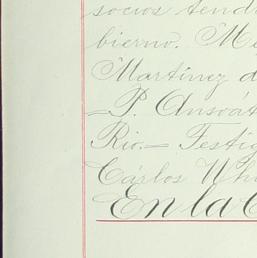 socios tend
bierno. M
Martínez d
=P. Ansoát
Rio.= Testig
Cárlos Whi
En la C